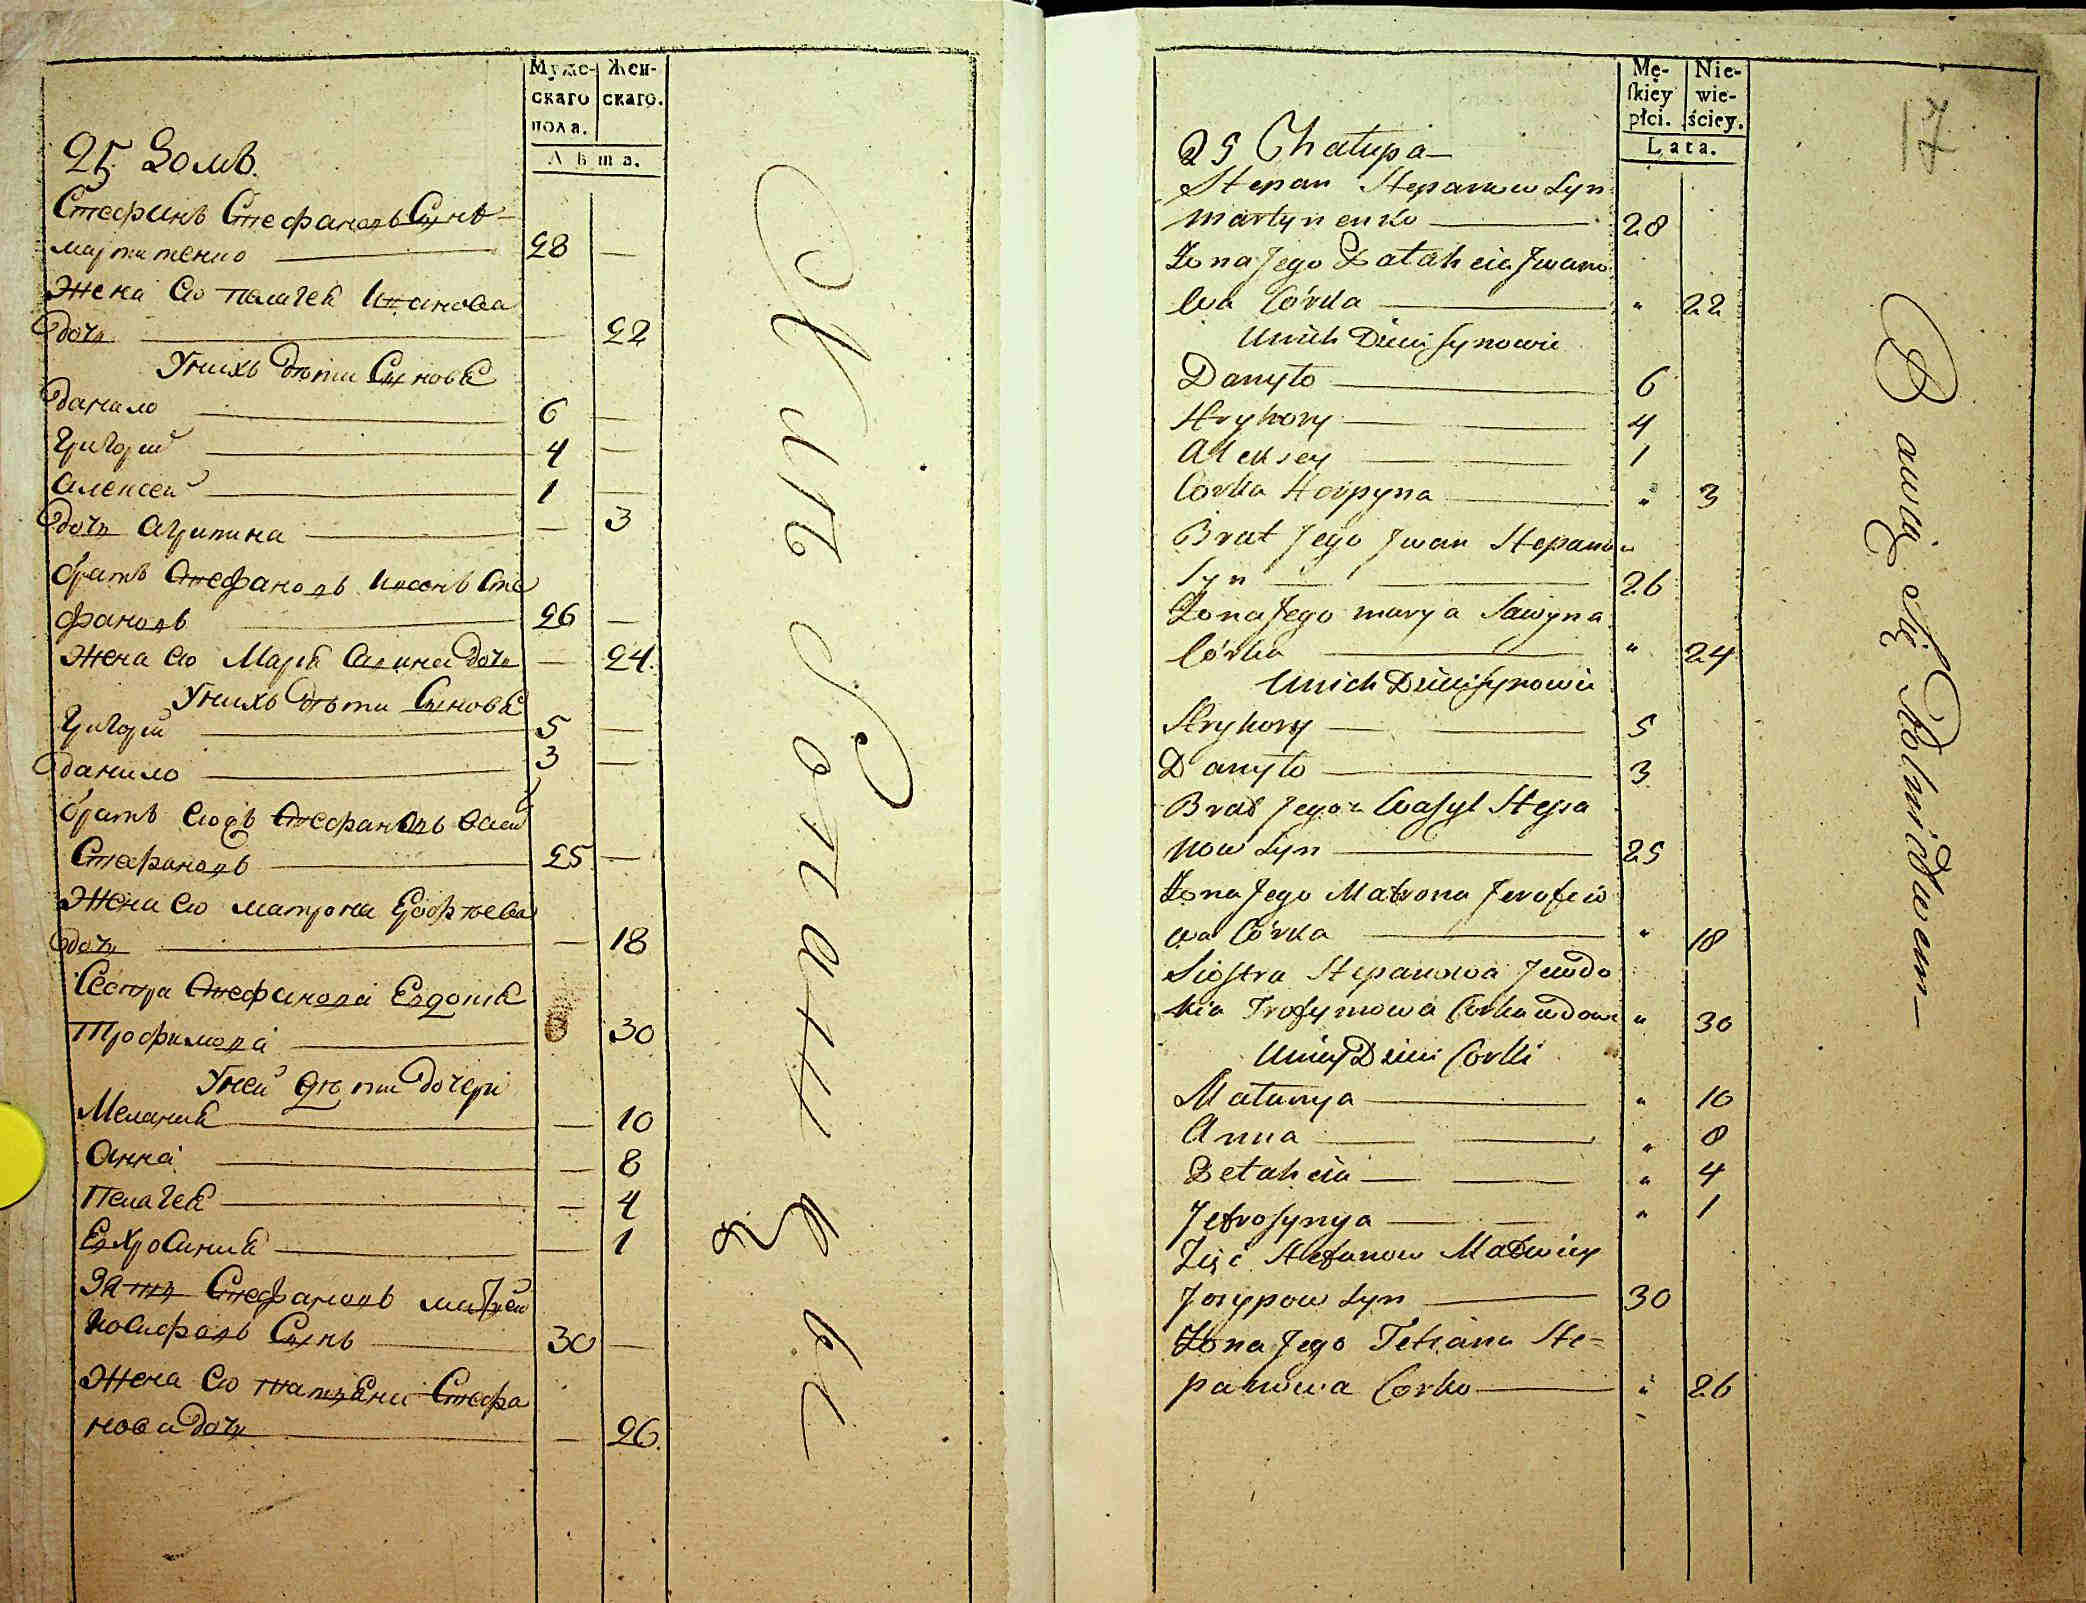 Муже-
скаго
пола.
Жен-
скаго.
Лѣта.
25 Домъ.
Стефанъ Стефановъ Сынъ
мартиненко 28 —
Жена Его Пелагея Иванова
дочь — 22
У нихъ дѣти Сыновя
данило 6 —
Григорий 4 —
Алексей 1 —
дочь Агрипина — 3
братъ Стефановъ Иванъ Сте
фановъ 26 —
Жена Его Марья Савина дочь — 24.
У нихъ дѣти Сыновя
Григорий 5 —
данило 3 —
братъ Стефановъ Васил
Стефановъ 25 —
Жена Его матрона Ерофѣева
дочь — 18
Сестра Стефанова Евдокия
Трофимова 30
У ней дѣти дочери
Мелания — 10
Анна — 8
Пелагея — 4
Евхросиния — 1
Зять Стефановъ матвей
Иосифовъ Сынъ 30 —
Жена Его татьяна Стефа
нова дочь — 26.
Жить
Mę-
skiey
płci.
Nie-
wie-
ściey.
Lata.
17
25 Chałupa
Stepan Stepanow Syn
Martynenko 28
Żona Jego Pałaheia Jwano
wa Córka " 22
U nich Dzieci Synowie
Danyło 6
Hryhory 4
Aleksey 1
Corka Horpyna " 3
Brat Jego Jwan Stepanow
Syn 26
Żona Jego marya Sawyna
Córka " 24
U nich Dzieci Synowie
Hryhory 5
Danyło 3
Brat Jego Wasyl Stepa
now Syn 25
Żona Jego Matrona Jerofeio
wa Córka " 18
Siostra Stepanowa Jewdo
kia Trofymowa Corka wdowa " 30
U niey Dzieci Corki
Małanya " 10
Anna " 8
Pełaheia " 4
Jefrosynya " 1
Zięć Stefanow Matwiey
Josypow Syn 30
Żona Jego Tetiana Ste=
panowa Corka " 26
Bawią się Rolnictwem